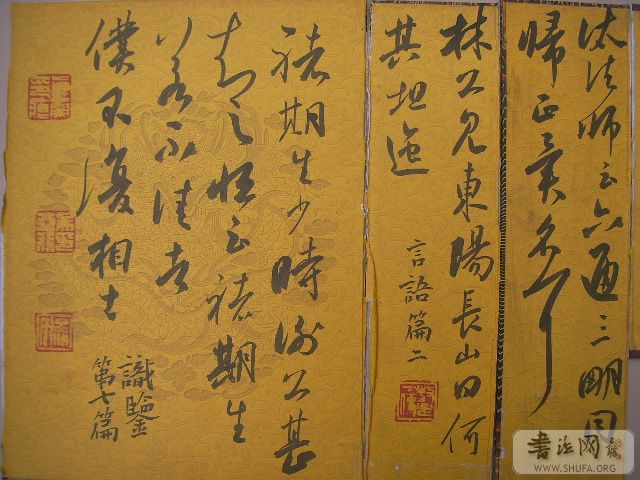 汰法師云六通三明同
歸正異名耳
林公見東陽長山曰何
其坦迤
言語篇二
褚期生少時謝公甚
知之恒云褚期生
若不佳者
僕不復相士
識鑒
第七篇
書法网
WWW.SHUFA.ORG